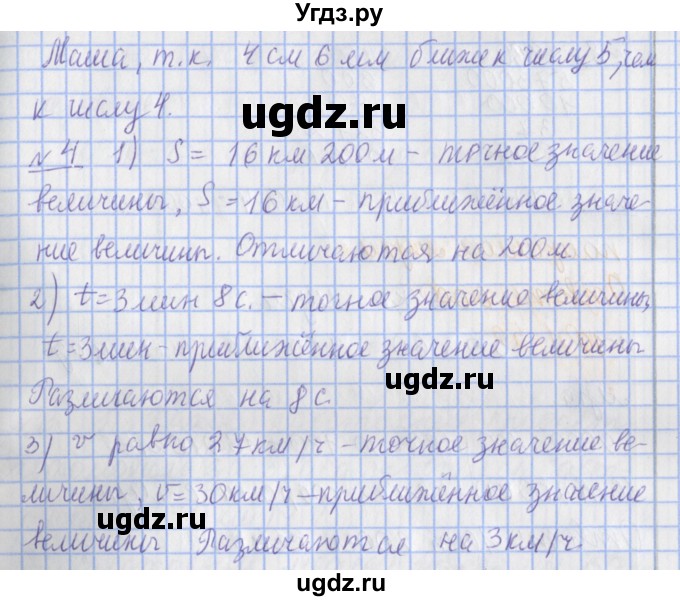 Угдз.ру
Маша, т.к. 4 см 6 мм ближе к числу 5, чем
к числу 4.
ugdz.ru
№ 4 1) S = 16 км 200 м – точное значение
величины, S = 16 км – приближённое значе-
ние величины. Отличаются на 200 м.
ugdz.ru
2) t = 3 мин 8 с. – точное значение величины,
t = 3 мин – приближённое значение величины
ugdz.ru
Различаются на 8 с.
3) v равно 27 км/ч – точное значение ве-
личины, v = 30 км/ч – приближённое значение
ugdz.ru
величины Различаются на 3 км/ч.
ugdz.ru
ugdz.ru